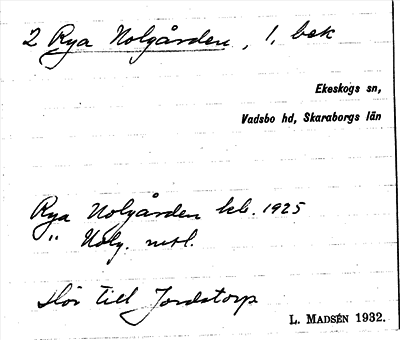 2 Rya Nolgården, 1, bek
Ekeskogs sn,
Vadsbo hd, Skaraborgs län
Rya Nolgården kb. 1925
" Nolg. mtl.
Hör till Jordstorp
L. MADSÉN 1932.